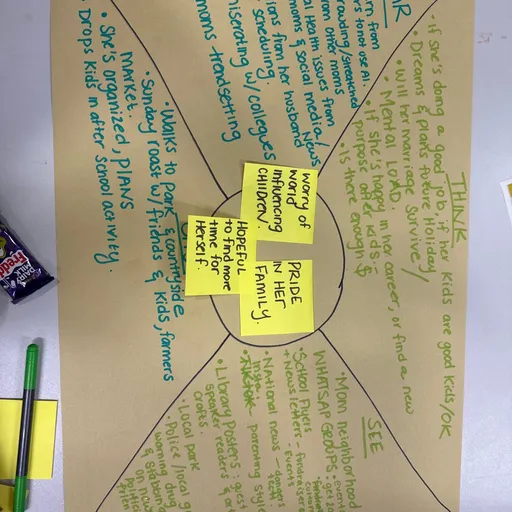 THINK
• If she's doing a good job, if her kids are good kids/OK
• Dreams & plans future Holiday,
• Will her marriage survive/
• Mental LOAD.
• If she's happy in her career, or find a new
purpose after kids.
• Is there enough $
AR
rs to not use AI.
from other moms
al Health issues from
moms & social media/News
ions from her husband
scheduling.
miserating w/colleagues
moms trendsetting
worry of
world
influencing
CHILDREN.
PRIDE
IN HER
FAMILY.
HOPEFUL
to find more
time for
Herself.
• Walks to Park & countryside
• Sunday roast w/friends & kids, farmers
MARKET.
• She's organized, PLANS
• Drops kids in after school activity.
SEE
• Mom neighborhood
WHATSAP GROUPS:
• School Flyers
+ Newsletters - fundraisers
Events
• National news -
Insta: parenting style
• Library posters: guest
speaker readers &
crafts.
• Local park
• Police/local g
warning drug
DAIRY
MILK